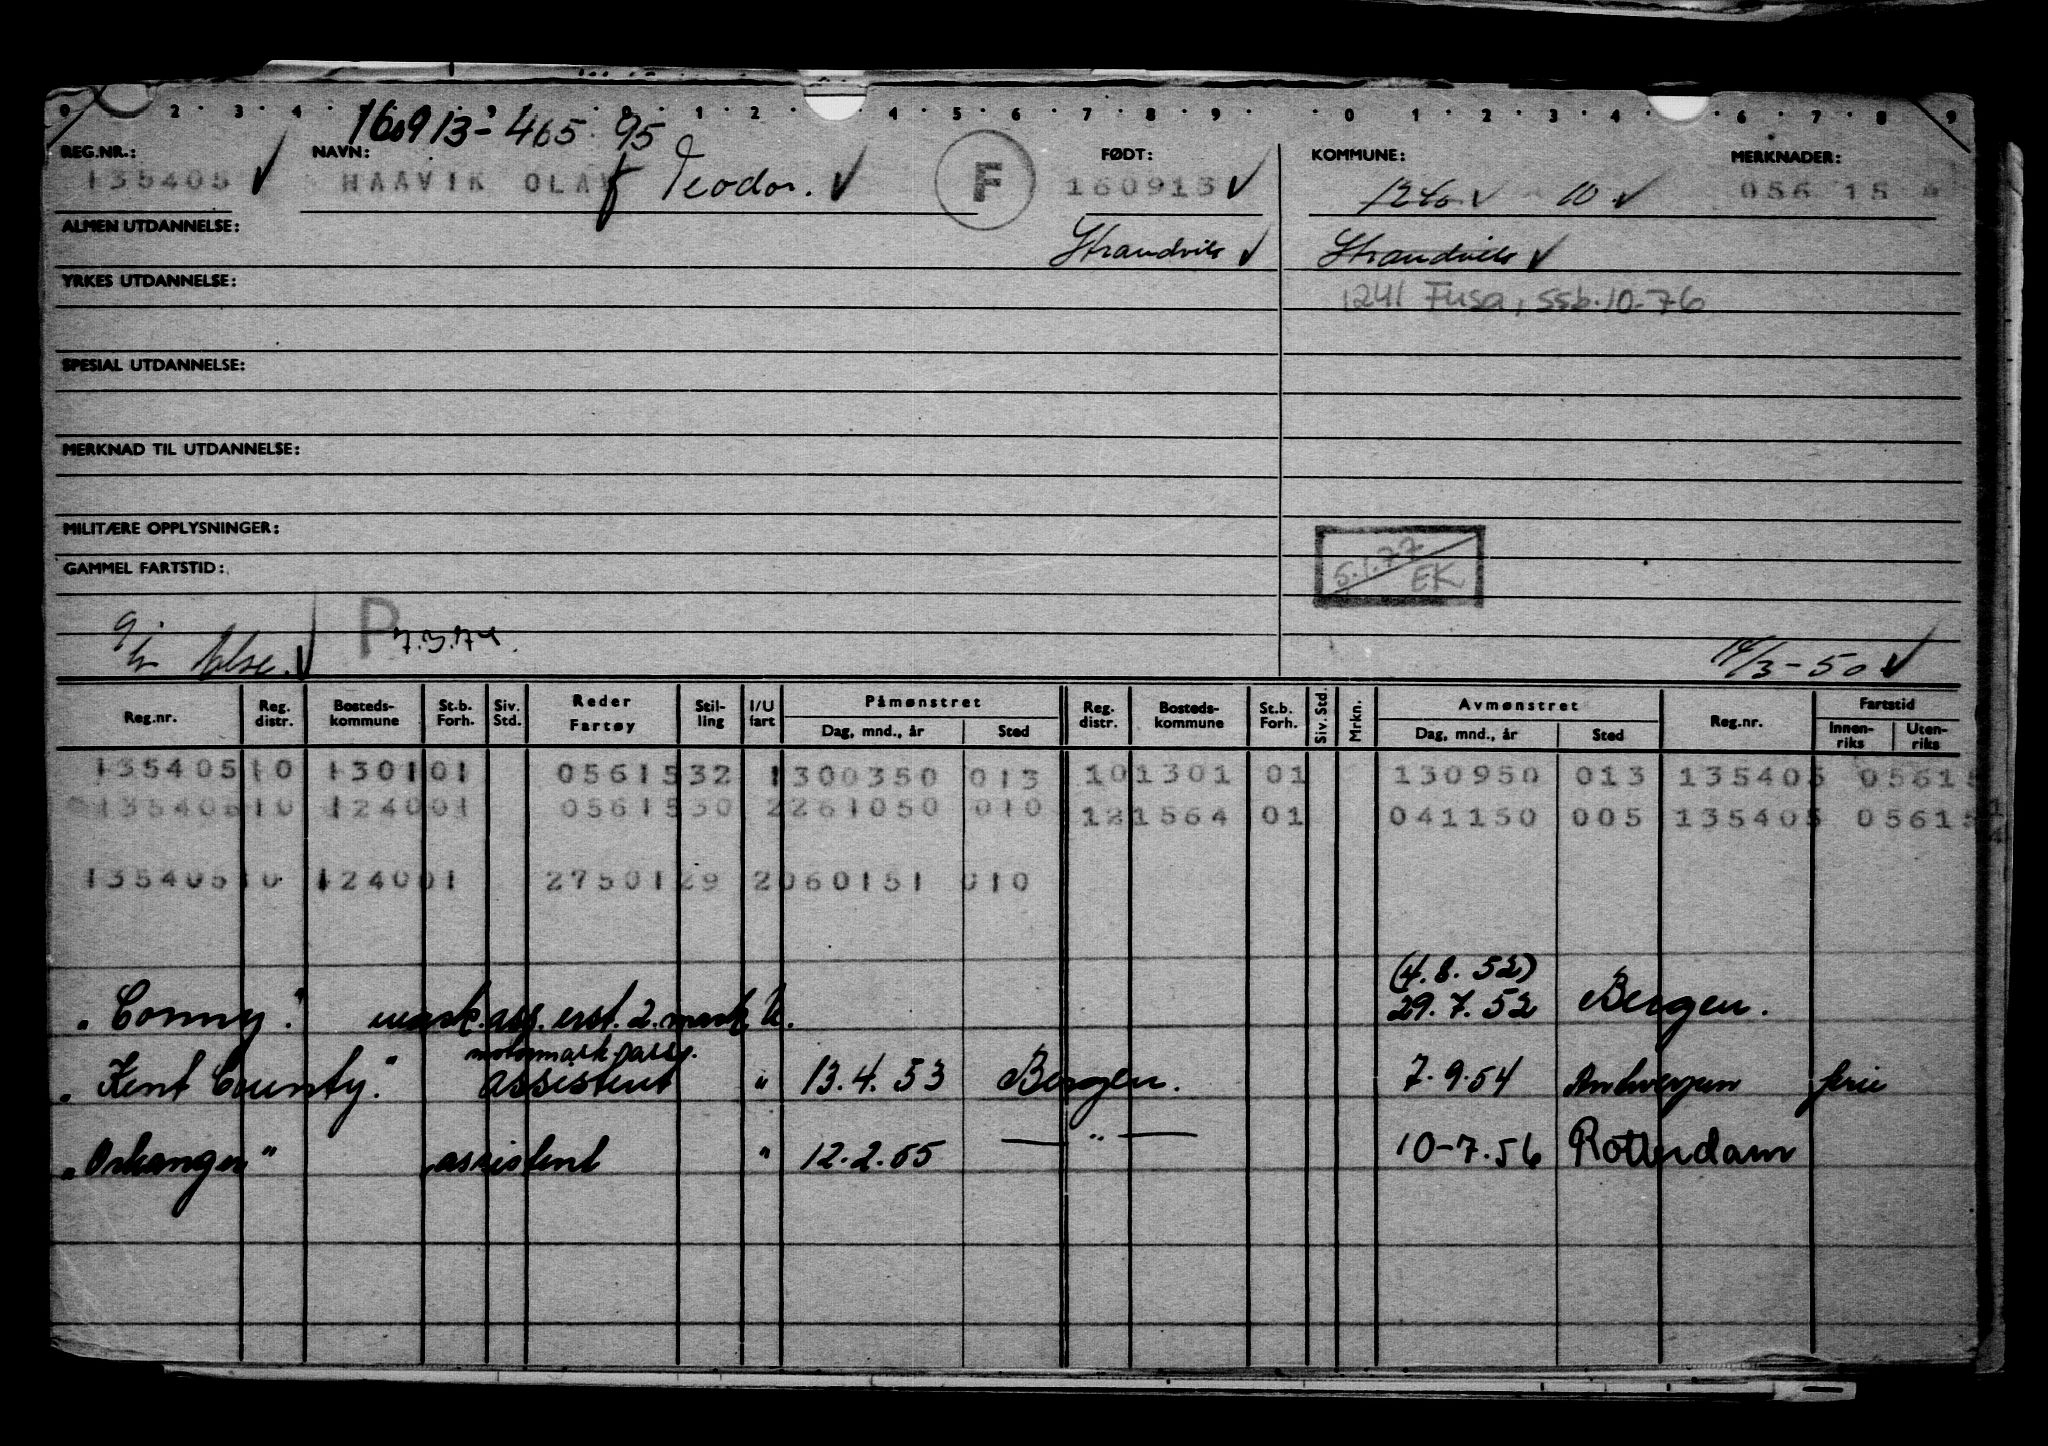 160913-465 95
REG.NR.: NAVN: FØDT: KOMMUNE: MERKNADER:
135405 HAAVIK OLAF Teodor. F 160913 1240 10 056 15
ALMEN UTDANNELSE: Strandvik Strandvik
YRKES UTDANNELSE: 1241 Fusa, ssb. 10-76
SPESIAL UTDANNELSE:
MERKNAD TIL UTDANNELSE:
MILITÆRE OPPLYSNINGER: 5.1.77
GAMMEL FARTSTID: EK
P 7.3.74. 14/3-50
Reg.nr. Reg. distr. Bosteds-kommune St.b. Forh. Siv. Std. Reder Fartøy Stil-ling I/U fart Påmønstret Dag, mnd., år Sted Reg. distr. Bosteds-kommune St.b. Forh. Siv. Std. Mrkn. Avmønstret Dag, mnd., år Sted Reg.nr. Fartstid Innen-riks Uten-riks
135405 10 1301 01 05615 32 1 300350 013 10 1301 01 130950 013 135405 05615
135405 10 1240 01 05615 30 2 261050 010 12 1564 01 041150 005 135405 05615
135405 10 1240 01 27501 29 2 060151 010
(4.8.52)
"Conny." mask.ass. erst. 2. mask U. 29.7.52 Bergen.
motormask pass.
"Kent County." assistent " 13.4.53 Bergen. 7.9.54 Antwerpen ferie
"Orkanger" assistent " 12.2.55 — " — 10-7.56 Rotterdam